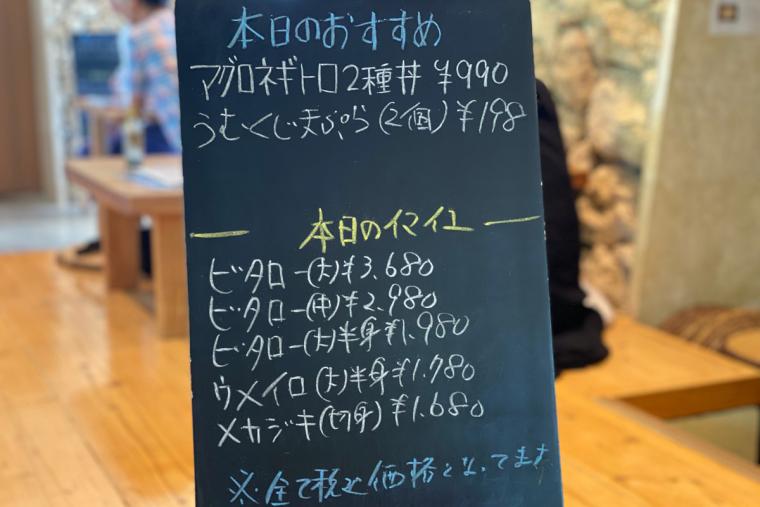 本日のおすすめ
マグロネギトロ2種丼 ¥990
うむくじ天ぷら(2個)¥198
本日のイマイユ
ビタロー(大)¥3,680
ビタロー(中)¥2,980
ビタロー(大)半身¥1,980
ウメイロ(大)半身¥1,780
メカジキ(切身)¥1,680
※全て税込価格となってます